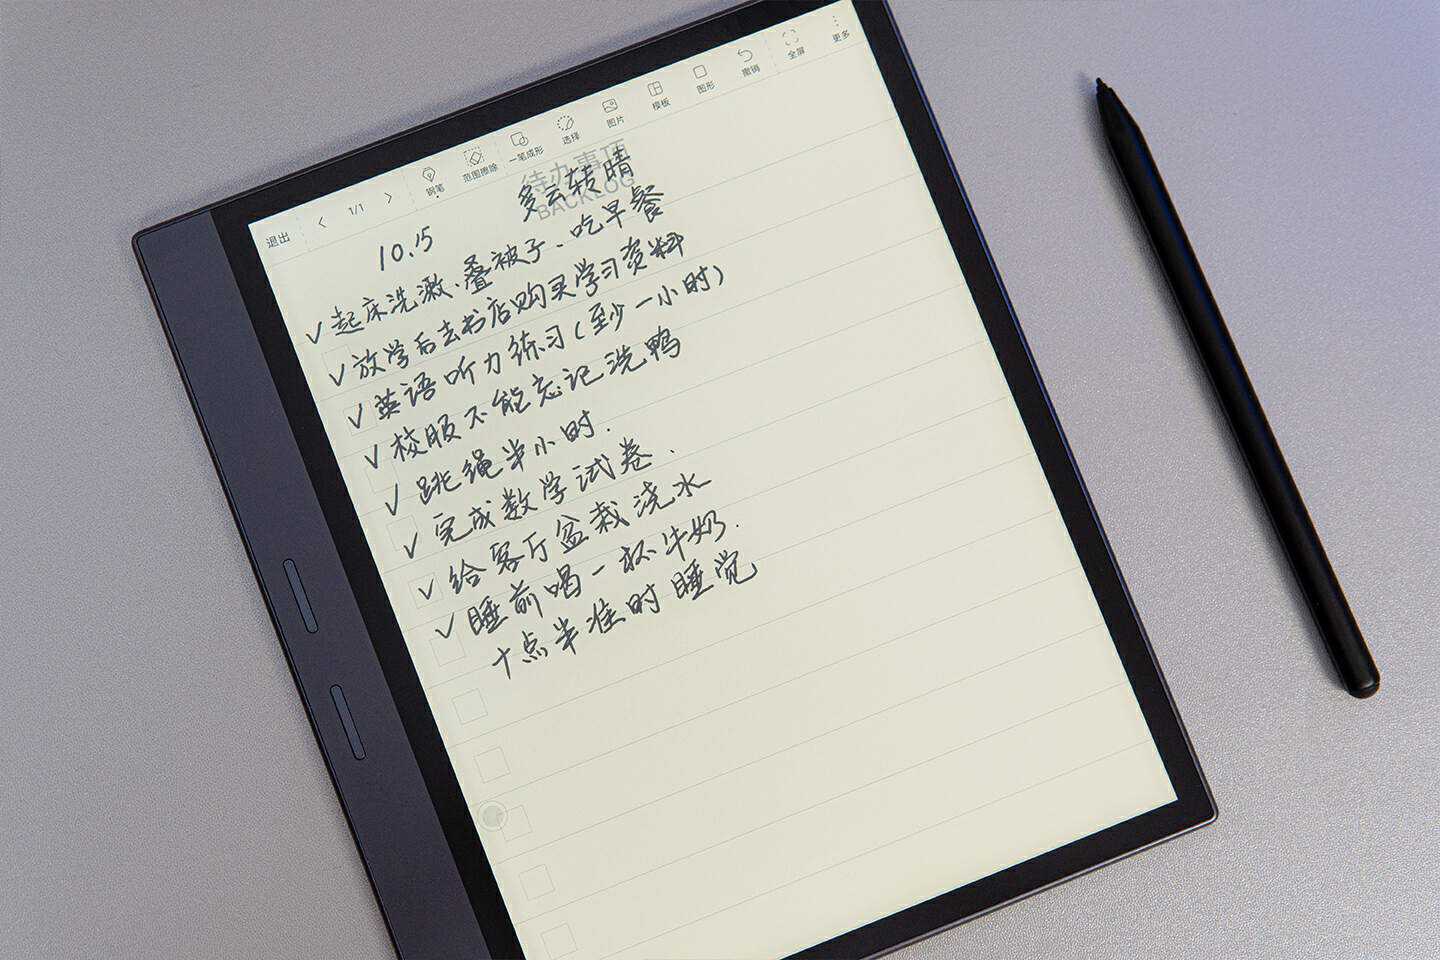 退出 1/1 钢笔 范围擦除 一笔成形 选择 图片 模板 图形 撤销 全屏 更多
待办事项
BACKLOG
10.15 多云转晴
✓起床洗漱、叠被子、吃早餐
✓放学后去书店购买学习资料
✓英语听力练习(至少一小时)
✓校服不能忘记洗鸭
✓跳绳半小时.
✓完成数学试卷.
✓给客厅盆栽浇水
✓睡前喝一杯牛奶.
十点半准时睡觉